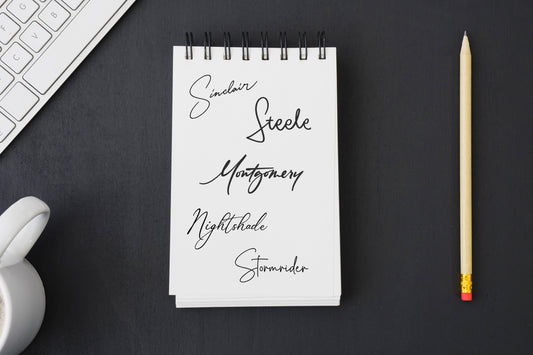 Sinclair
Steele
Montgomery
Nightshade
Stormrider